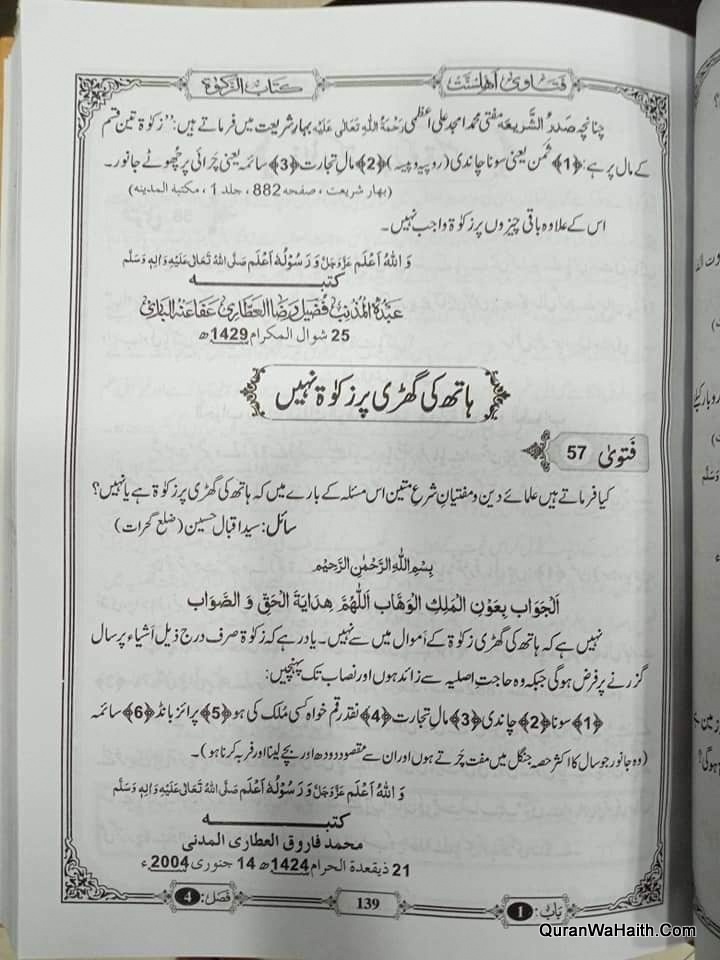 فتاویٰ اَھلسنّت
کتاب الزکوٰۃ
چنانچہ صدرُ الشَّریعہ مفتی محمد امجد علی اعظمی رَحْمَۃُ اللہِ تَعَالٰی عَلَیْہِ بہارِ شریعت میں فرماتے ہیں: ”زکوٰۃ تین قسم
کے مال پر ہے: ﴿1﴾ ثمن یعنی سونا چاندی (روپیہ پیسہ) ﴿2﴾ مالِ تجارت ﴿3﴾ سائمہ یعنی چرائی پر چُھوٹے جانور۔
(بهار شریعت ، صفحه 882 ، جلد 1 ، مکتبة المدینه)
اس کے علاوہ باقی چیزوں پر زکوٰۃ واجب نہیں۔
وَ اللہُ اَعْلَم عَزَّوَجَلَّ وَ رَسُوْلُہٗ اَعْلَم صَلَّی اللہُ تَعَالٰی عَلَیْہِ وَاٰلِہٖ وَسَلَّم
کتبـــــــــــــہ
عَبْدُہُ الْمُذْنِب فُضَیل رضا العَطّاری عَفَا عَنْہُ الْبَارِی
25 شوال المکرام 1429ھ
ہاتھ کی گھڑی پر زکوٰۃ نہیں
فتویٰ 57
کیا فرماتے ہیں علمائے دین و مفتیانِ شرعِ متین اس مسئلہ کے بارے میں کہ ہاتھ کی گھڑی پر زکوٰۃ ہے یا نہیں؟
سائل: سید اقبال حسین (ضلع گجرات)
بِسْمِ اللہِ الرَّحْمٰنِ الرَّحِیْمِ
اَلْجَوَابُ بِعَوْنِ الْمَلِکِ الْوَھَّابِ اَللّٰھُمَّ ھِدَایَةَ الْحَقِّ وَ الصَّوَابِ
نہیں ہے کہ ہاتھ کی گھڑی زکوٰۃ کے اَموال میں سے نہیں۔ یاد رہے کہ زکوٰۃ صرف درج ذیل اَشیاء پر سال
گزرنے پر فرض ہوگی جبکہ وہ حاجتِ اصلیہ سے زائد ہوں اور نصاب تک پہنچیں:
﴿1﴾ سونا ﴿2﴾ چاندی ﴿3﴾ مالِ تجارت ﴿4﴾ نقد رقم خواہ کسی مُلک کی ہو ﴿5﴾ پرائز بانڈ ﴿6﴾ سائمہ
(وہ جانور جو سال کا اکثر حصہ جنگل میں مفت چَرتے ہوں اور ان سے مقصود دودھ اور بچے لینا اور فربہ کرنا ہو)۔
وَ اللہُ اَعْلَم عَزَّوَجَلَّ وَ رَسُوْلُہٗ اَعْلَم صَلَّی اللہُ تَعَالٰی عَلَیْہِ وَاٰلِہٖ وَسَلَّم
کتبـــــــــــــہ
محمد فاروق العطاری المدنی
21 ذیقعدة الحرام 1424ھ 14 جنوری 2004ء
بَاب: 1
139
فَصْل: 4
QuranWaHaith.Com